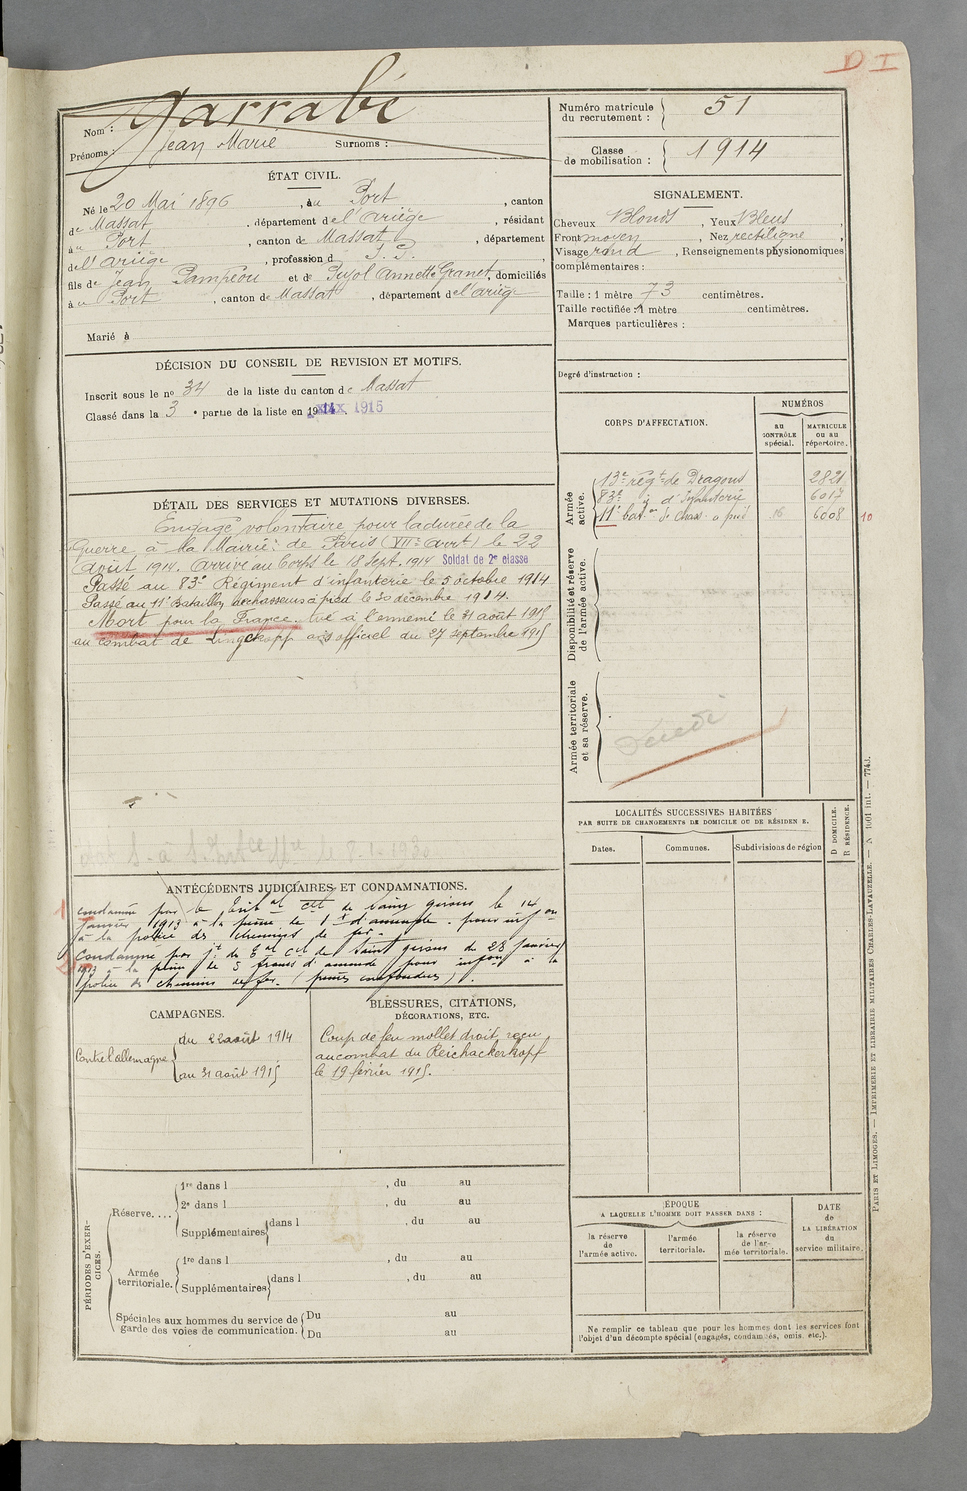 D I
Nom : Garrabé
Prénoms : Jean Marie Surnoms :
Numéro matricule du recrutement : 51
Classe de mobilisation : 1914
ÉTAT CIVIL.
Né le 20 Mai 1896 , à u Port , canton
de Massat , département de l'Ariège , résidant
à u Port , canton de Massat , département
de l'Ariège , profession d S. P. ,
fils de Jean Pampeou et de Pujol Annette Granet, domiciliés
à u Port , canton de Massat , département de l'Ariège
Marié à
SIGNALEMENT.
Cheveux Blonds , Yeux Bleus
Front moyen , Nez rectiligne ,
Visage rond , Renseignements physionomiques
complémentaires :
Taille : 1 mètre 73 centimètres.
Taille rectifiée : 1 mètre centimètres.
Marques particulières :
Degré d'instruction :
DÉCISION DU CONSEIL DE REVISION ET MOTIFS.
Inscrit sous le no 34 de la liste du canton de Massat
Classé dans la 3 e partie de la liste en 1914 1915
DÉTAIL DES SERVICES ET MUTATIONS DIVERSES.
Engagé volontaire pour la durée de la
Guerre à la Mairie de Paris (VIIe arrt) le 22
Août 1914. Arrivé au Corps le 18 Sept. 1914 Soldat de 2e classe
Passé au 83e Régiment d'infanterie le 5 octobre 1914
Passé au 11e Bataillon de chasseurs à pied le 30 décembre 1914.
Mort pour la France. tué à l'ennemi le 31 août 1915
au combat de Lingekopf avis officiel du 27 septembre 1915
CORPS D'AFFECTATION.
NUMÉROS
au CONTRÔLE spécial.
MATRICULE ou au répertoire.
Armée active.
13e régt de Dragons 2821
83e d° d'Infanterie 6017
11e bat.on de Chass. à pied 16 6008 10
Disponibilité et réserve de l'armée active.
Armée territoriale et sa réserve.
Décédé
LOCALITÉS SUCCESSIVES HABITÉES
PAR SUITE DE CHANGEMENTS DE DOMICILE OU DE RÉSIDEN E.
Dates. Communes. Subdivisions de région
D DOMICILE. R RÉSIDENCE.
ANTÉCÉDENTS JUDICIAIRES ET CONDAMNATIONS.
1 condamné par le Tribal Cel de Saint girons le 14
janvier 1913 à la peine de 1 f d'amende. pour infon
à la police des chemins de fer.
2 Condamné par jt du Tal Cel de Saint girons du 28 janvier
1913 à la peine de 5 francs d'amende pour infon à la
police des chemins de fer. (peines confondues).
CAMPAGNES.
Contre l'allemagne
du 22 août 1914
au 31 août 1915
BLESSURES, CITATIONS,
DÉCORATIONS, ETC.
Coup de feu mollet droit reçu
au combat du Reichackerkopf
le 19 février 1915.
PÉRIODES D'EXERCICES.
Réserve....
1re dans l , du au
2e dans l , du au
Supplémentaires dans l , du au
Armée territoriale.
1re dans l , du au
Supplémentaires dans l , du au
Spéciales aux hommes du service de
garde des voies de communication.
Du au
Du au
ÉPOQUE
A LAQUELLE L'HOMME DOIT PASSER DANS :
la réserve de l'armée active.
l'armée territoriale.
la réserve de l'armée territoriale.
DATE de LA LIBÉRATION du service militaire.
Ne remplir ce tableau que pour les hommes dont les services font
l'objet d'un décompte spécial (engagés, condamnés, omis, etc.).
PARIS ET LIMOGES. — IMPRIMERIE ET LIBRAIRIE MILITAIRES CHARLES-LAVAUZELLE. — N° 1001 int. — 7743.